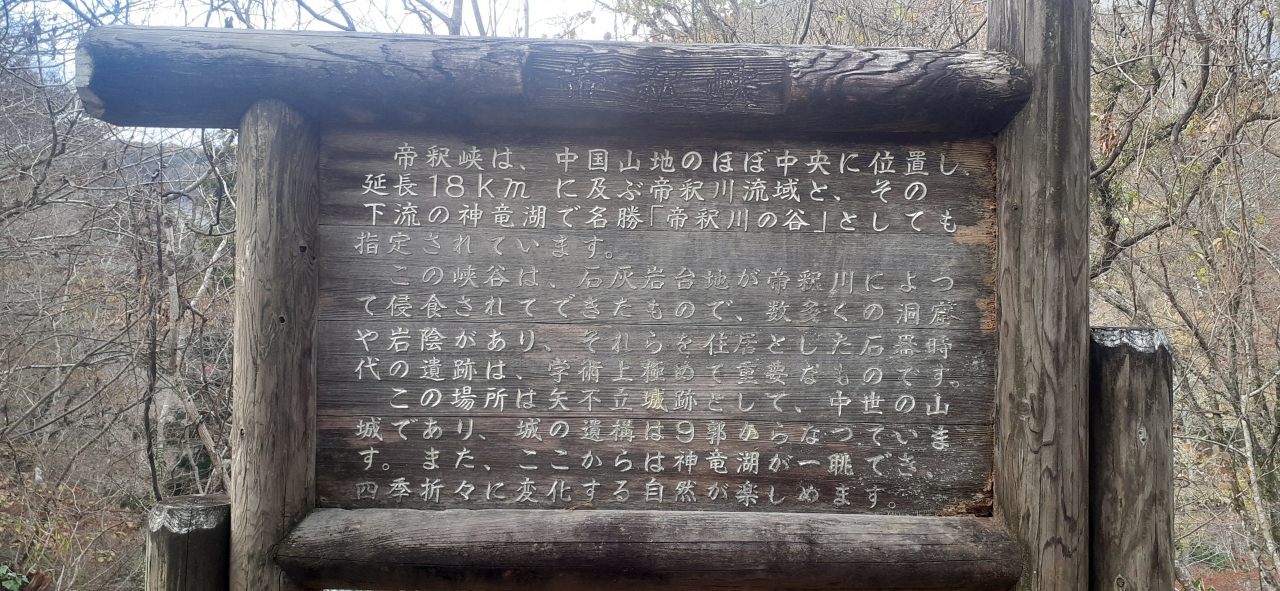 帝釈峡
帝釈峡は、中国山地のほぼ中央に位置し、
延長18km に及ぶ帝釈川流域と、その
下流の神竜湖で名勝「帝釈川の谷」としても
指定されています。
この峡谷は、石灰岩台地が帝釈川によつ
て侵食されてできたもので、数多くの洞窟
や岩陰があり、それらを住居とした石器時
代の遺跡は、学術上極めて重要なものです。
この場所は矢不立城跡として、中世の山
城であり、城の遺構は9郭からなつていま
す。また、ここからは神竜湖が一眺でき、
四季折々に変化する自然が楽しめます。